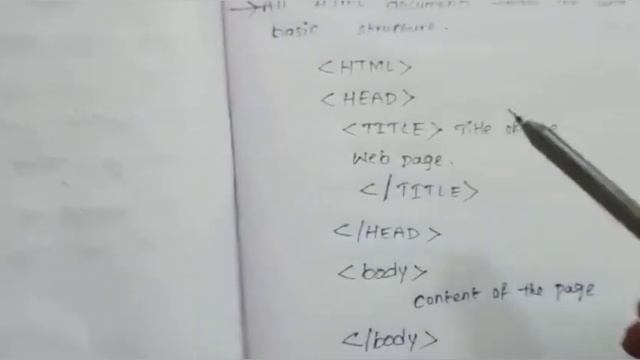 → All HTML document
basic structure.
<HTML>
<HEAD>
<TITLE> Title
Web page.
</TITLE>
</HEAD>
<body>
Content of the page
</body>